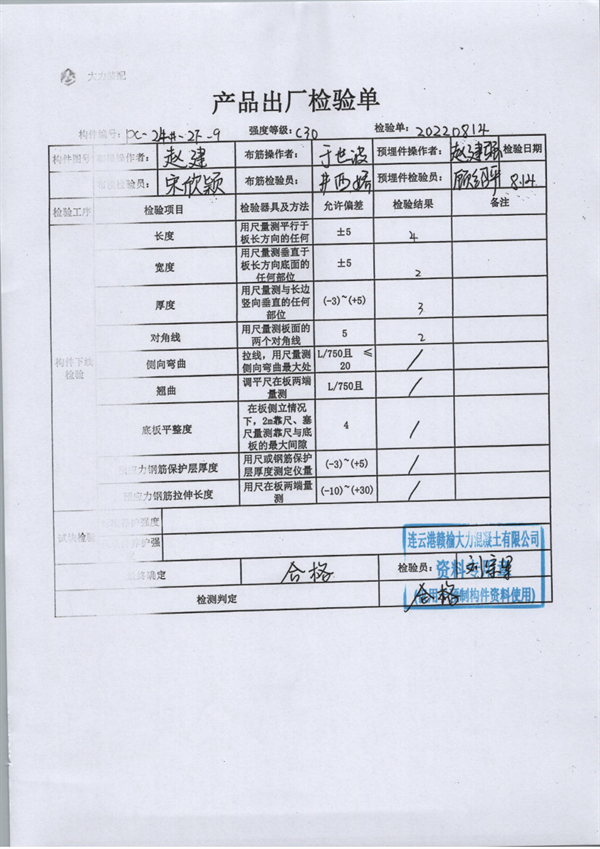 大力装配
产品出厂检验单
构件编号: PC-24#-2F-9 强度等级: C30 检验单: 20220814
构件图号 操作者: 赵建 布筋操作者: 于世波 预埋件操作者: 赵建强 检验日期
检验员: 宋欣颖 布筋检验员: 预埋件检验员: 8.14
检验工序 检验项目 检验器具及方法 允许偏差 检验结果 备注
构件下线检验
长度 用尺量测平行于板长方向的任何 ±5 4
宽度 用尺量测垂直于板长方向底面的任何部位 ±5 2
厚度 用尺量测与长边竖向垂直的任何部位 (-3)~(+5) 3
对角线 用尺量测板面的两个对角线 5 2
侧向弯曲 拉线，用尺量测侧向弯曲最大处 L/750且 ≤20 /
翘曲 调平尺在板两端量测 L/750且 /
底板平整度 在板侧立情况下，2m靠尺、塞尺量测靠尺与底板的最大间隙 4 /
应力钢筋保护层厚度 用尺或钢筋保护层厚度测定仪量 (-3)~(+5) /
应力钢筋拉伸长度 用尺在板两端量测 (-10)~(+30) /
试块检验 养护强度
护强
确定 合格 检验员:
检测判定 合格
连云港赣榆大力混凝土有限公司
资料专用章
制构件资料使用)